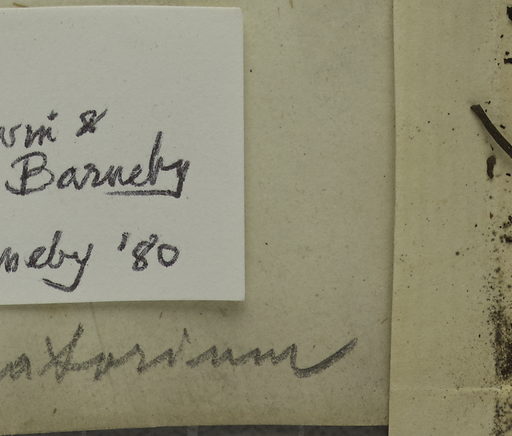 wni &
Barneby
neby '80
atorium